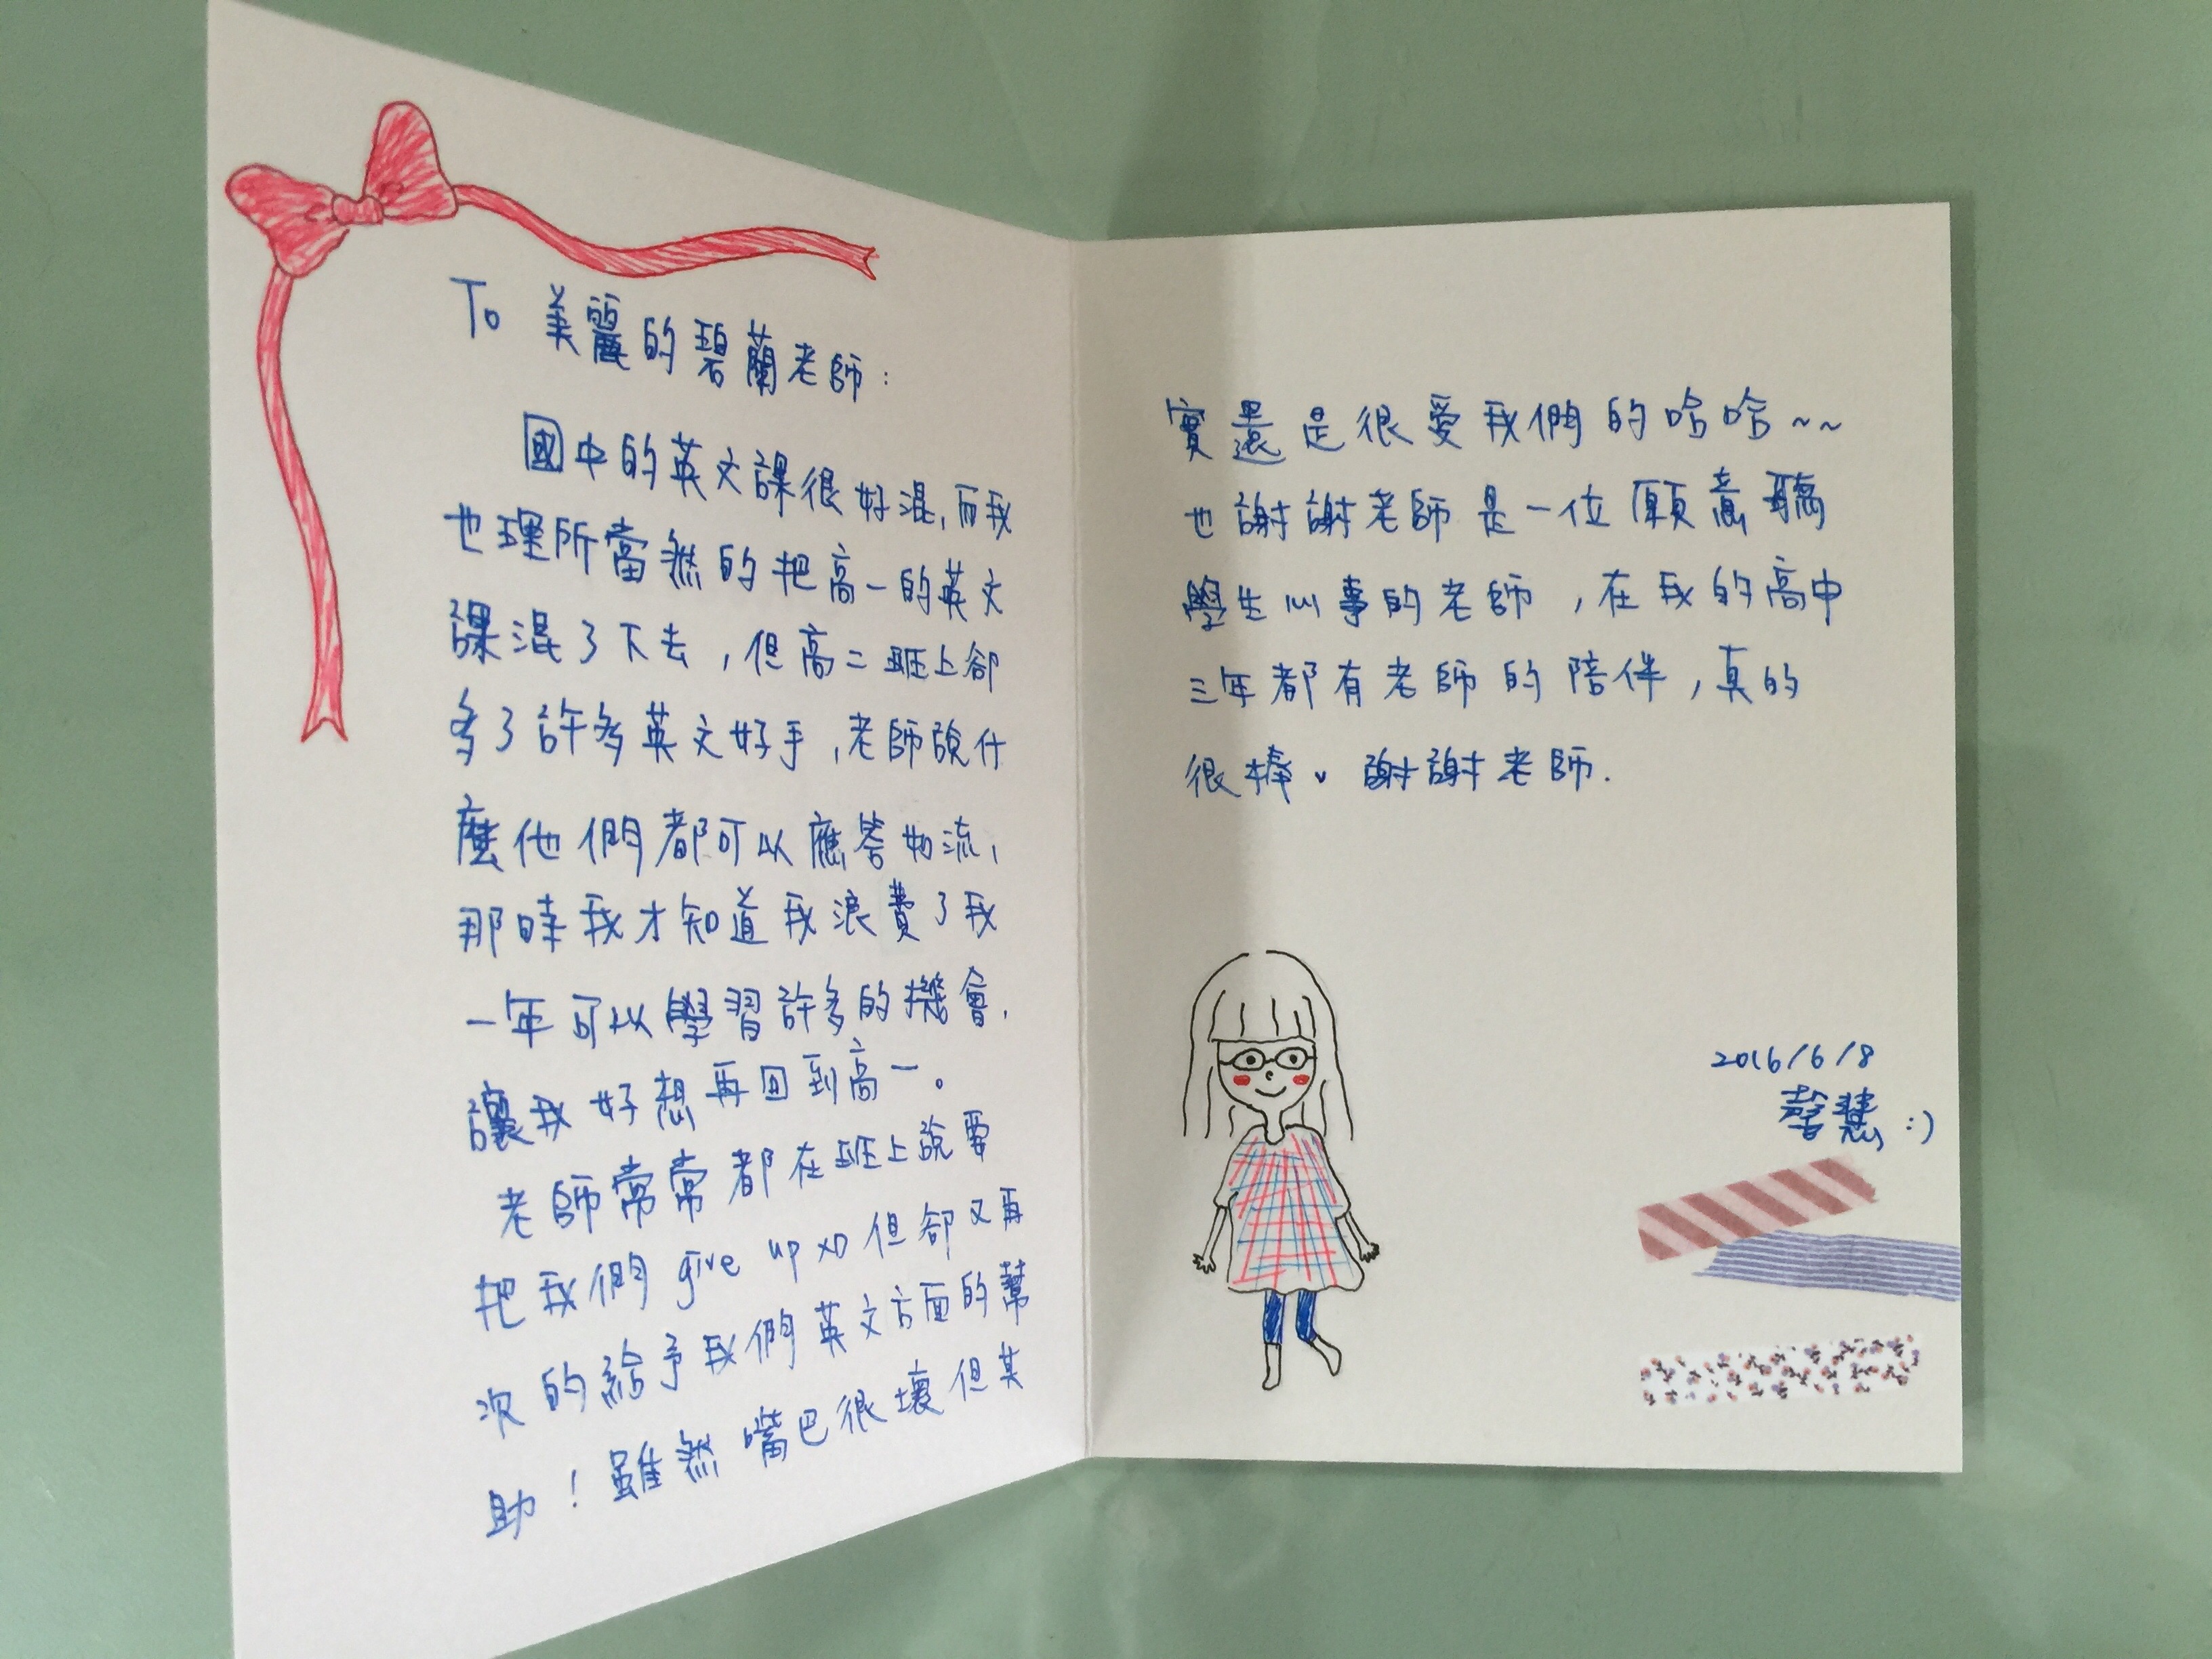 To 美麗的碧蘭老師:
國中的英文課很好混,而我
也理所當然的把高一的英文
課混了下去,但高二班上卻
多了許多英文好手,老師說什
麼他們都可以應答如流,
那時我才知道我浪費了我
一年可以學習許多的機會,
讓我好想再回到高一。
老師常常都在班上說要
把我們 give up XD 但卻又再
次的給予我們英文方面的幫
助!雖然嘴巴很壞但其
實還是很愛我們的哈哈~~
也謝謝老師是一位願意聽
學生心事的老師,在我的高中
三年都有老師的陪伴,真的
很棒。謝謝老師.
2016/6/8
馨慧 :)